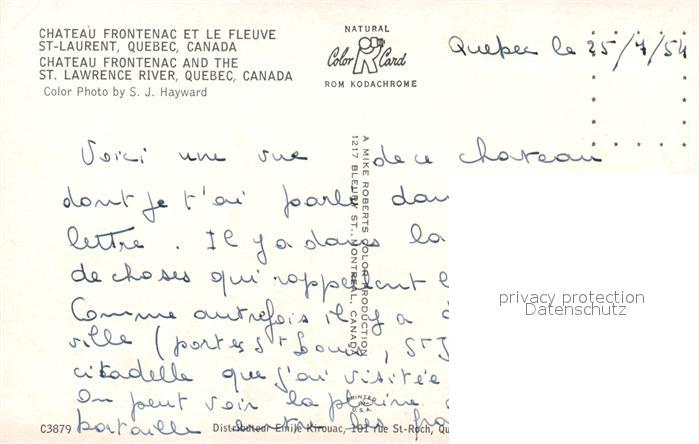 CHATEAU FRONTENAC ET LE FLEUVE
ST-LAURENT, QUEBEC, CANADA
CHATEAU FRONTENAC AND THE
ST. LAWRENCE RIVER, QUEBEC, CANADA
Color Photo by S. J. Hayward
NATURAL
Color Card
ROM KODACHROME
Quebec le 25/7/54
Voici une vue de ce chateau
dont je t'ai parlé dan
lettre. Il y a dans la
de choses qui rappellent l
Comme autrefois il y a
ville (portes St Louis, St J
citadelle que j'ai visitée
On peut voir la plaine
bataille entre les fra
A MIKE ROBERTS COLOR PRODUCTION
1217 BLEURY ST., MONTREAL, CANADA
PRINTED
U.S.A.
C3879
Distributeur Emile Kirouac, 101 rue St-Roch, Qu
privacy protection
Datenschutz